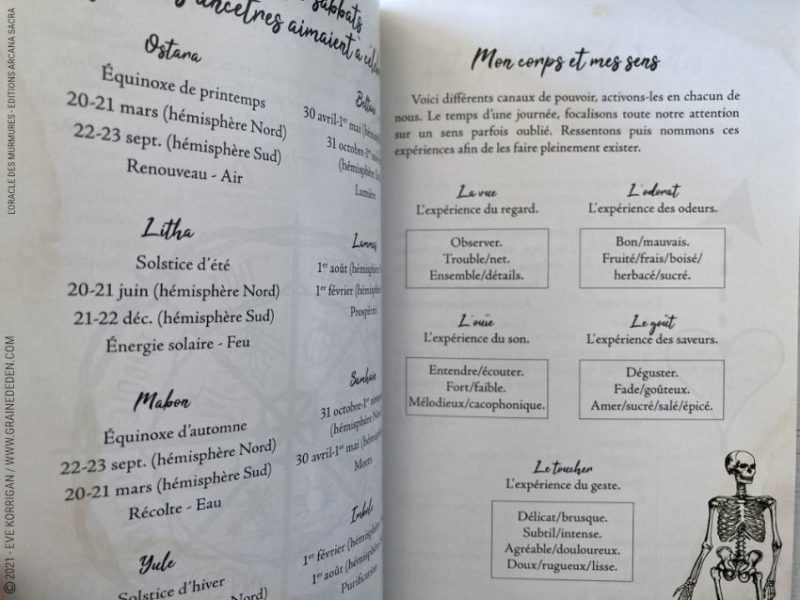 sabbats
ancêtres aimaient à
Ostara
Équinoxe de printemps
20-21 mars (hémisphère Nord)
22-23 sept. (hémisphère Sud)
Renouveau - Air
Litha
Solstice d'été
20-21 juin (hémisphère Nord)
21-22 déc. (hémisphère Sud)
Énergie solaire - Feu
Mabon
Équinoxe d'automne
22-23 sept. (hémisphère Nord)
20-21 mars (hémisphère Sud)
Récolte - Eau
Yule
Solstice d'hiver
(hémisphère Nord)
30 avril-1er mai (hémisphère
31 octobre-1er
(hémisphère
Lumière
1er août (hémisphère
1er février (hémisphère
Samhain
31 octobre-1er
(hémisphère
30 avril-1er mai (hémisphère
Morts
1er février (hémisphère
1er août (hémisphère
Purification
Mon corps et mes sens
Voici différents canaux de pouvoir, activons-les en chacun de
nous. Le temps d'une journée, focalisons toute notre attention
sur un sens parfois oublié. Ressentons puis nommons ces
expériences afin de les faire pleinement exister.
La vue
L'expérience du regard.
Observer.
Trouble/net.
Ensemble/détails.
L'odorat
L'expérience des odeurs.
Bon/mauvais.
Fruité/frais/boisé/
herbacé/sucré.
L'ouïe
L'expérience du son.
Entendre/écouter.
Fort/faible.
Mélodieux/cacophonique.
Le goût
L'expérience des saveurs.
Déguster.
Fade/goûteux.
Amer/sucré/salé/épicé.
Le toucher
L'expérience du geste.
Délicat/brusque.
Subtil/intense.
Agréable/douloureux.
Doux/rugueux/lisse.
© 2021 - EVE KORRIGAN / WWW.GRAINEDEDEN.COM
L'ORACLE DES MURMURES - EDITIONS ARCANA SACRA